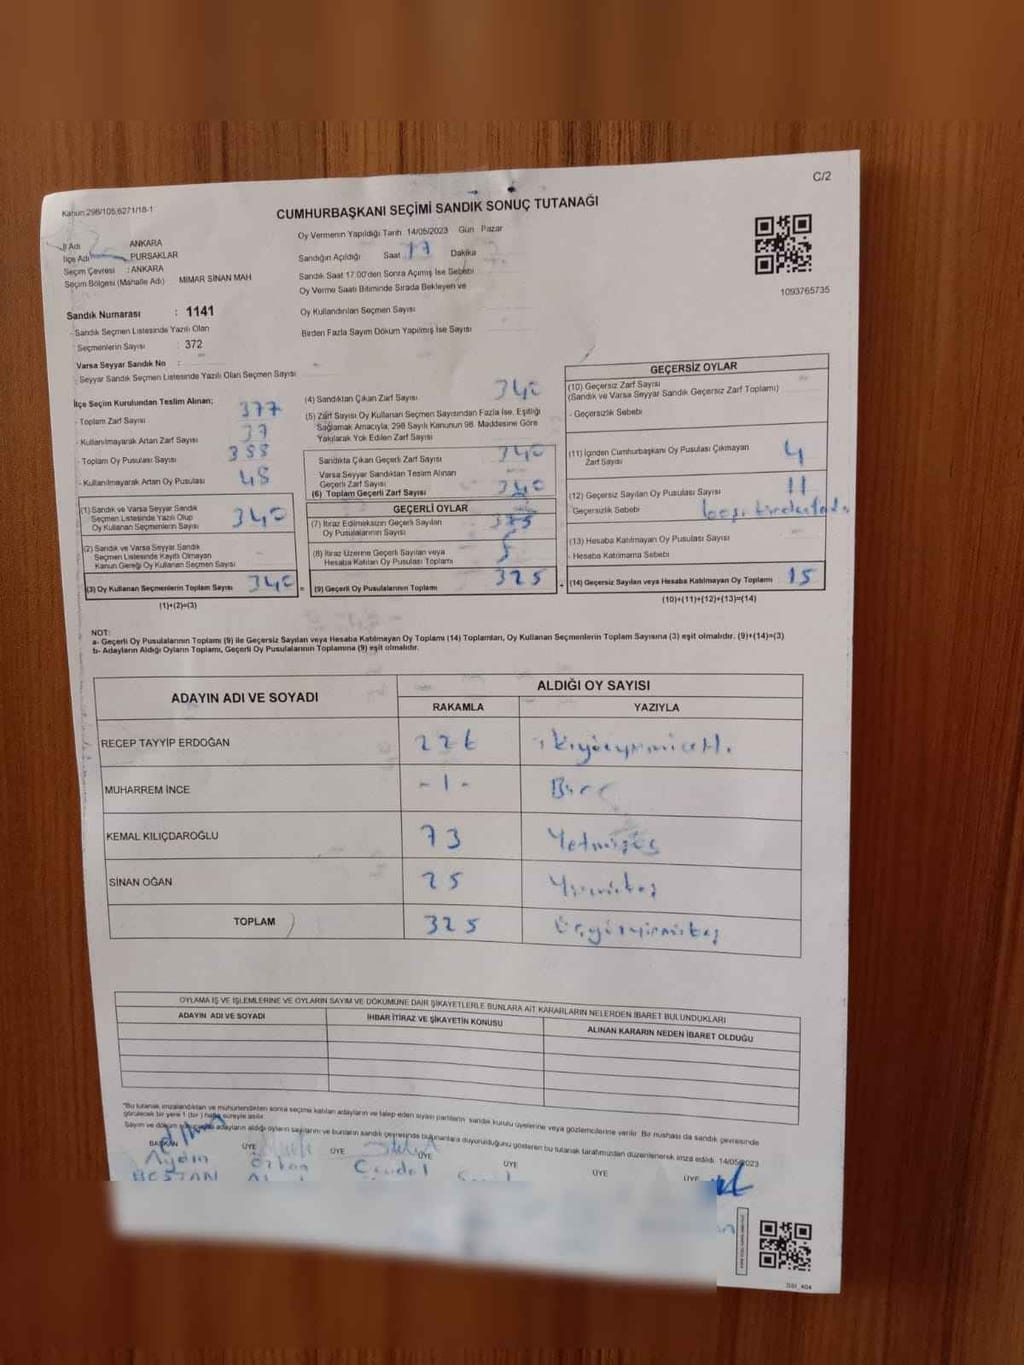 C/2
Kanun:298/105,6271/18-1
CUMHURBAŞKANI SEÇİMİ SANDIK SONUÇ TUTANAĞI
İl Adı ANKARA
İlçe Adı PURSAKLAR
Seçim Çevresi : ANKARA
Seçim Bölgesi (Mahalle Adı) MİMAR SİNAN MAH
Oy Vermenin Yapıldığı Tarih 14/05/2023 Gün Pazar
Sandığın Açıldığı Saat 17 Dakika
Sandık Saat 17.00'den Sonra Açılmış İse Sebebi
Oy Verme Saati Bitiminde Sırada Bekleyen ve
Oy Kullandırılan Seçmen Sayısı
Birden Fazla Sayım Döküm Yapılmış İse Sayısı
1093765735
Sandık Numarası : 1141
- Sandık Seçmen Listesinde Yazılı Olan
Seçmenlerin Sayısı : 372
Varsa Seyyar Sandık No :
- Seyyar Sandık Seçmen Listesinde Yazılı Olan Seçmen Sayısı
İlçe Seçim Kurulundan Teslim Alınan;
- Toplam Zarf Sayısı 377
- Kullanılmayarak Artan Zarf Sayısı 37
- Toplam Oy Pusulası Sayısı 388
- Kullanılmayarak Artan Oy Pusulası 48
(1) Sandık ve Varsa Seyyar Sandık
Seçmen Listesinde Yazılı Olup
Oy Kullanan Seçmenlerin Sayısı 340
(2) Sandık ve Varsa Seyyar Sandık
Seçmen Listesinde Kayıtlı Olmayan
Kanun Gereği Oy Kullanan Seçmen Sayısı
(3) Oy Kullanan Seçmenlerin Toplam Sayısı 340
(1)+(2)=(3)
(4) Sandıktan Çıkan Zarf Sayısı 340
(5) Zarf Sayısı Oy Kullanan Seçmen Sayısından Fazla İse, Eşitliği
Sağlamak Amacıyla; 298 Sayılı Kanunun 98. Maddesine Göre
Yakılarak Yok Edilen Zarf Sayısı
Sandıkta Çıkan Geçerli Zarf Sayısı 340
Varsa Seyyar Sandıktan Teslim Alınan
Geçerli Zarf Sayısı
(6) Toplam Geçerli Zarf Sayısı 340
GEÇERLİ OYLAR
(7) İtiraz Edilmeksizin Geçerli Sayılan
Oy Pusulalarının Sayısı
(8) İtiraz Üzerine Geçerli Sayılan veya
Hesaba Katılan Oy Pusulası Toplamı
(9) Geçerli Oy Pusulalarının Toplamı 325
GEÇERSİZ OYLAR
(10) Geçersiz Zarf Sayısı
(Sandık ve Varsa Seyyar Sandık Geçersiz Zarf Toplamı)
- Geçersizlik Sebebi
(11) İçinden Cumhurbaşkanı Oy Pusulası Çıkmayan
Zarf Sayısı 4
(12) Geçersiz Sayılan Oy Pusulası Sayısı 11
Geçersizlik Sebebi
(13) Hesaba Katılmayan Oy Pusulası Sayısı
- Hesaba Katılmama Sebebi
(14) Geçersiz Sayılan veya Hesaba Katılmayan Oy Toplamı 15
(10)+(11)+(12)+(13)=(14)
NOT:
a- Geçerli Oy Pusulalarının Toplamı (9) ile Geçersiz Sayılan veya Hesaba Katılmayan Oy Toplamı (14) Toplamları, Oy Kullanan Seçmenlerin Toplam Sayısına (3) eşit olmalıdır. (9)+(14)=(3)
b- Adayların Aldığı Oyların Toplamı, Geçerli Oy Pusulalarının Toplamına (9) eşit olmalıdır.
ADAYIN ADI VE SOYADI ALDIĞI OY SAYISI
RAKAMLA YAZIYLA
RECEP TAYYİP ERDOĞAN 226 ikiyüzyirmialtı
MUHARREM İNCE - 1 - Bir
KEMAL KILIÇDAROĞLU 73 Yetmişüç
SİNAN OĞAN 25 Yirmibeş
TOPLAM 325 Üçyüzyirmibeş
OYLAMA İŞ VE İŞLEMLERİNE VE OYLARIN SAYIM VE DÖKÜMÜNE DAİR ŞİKAYETLERLE BUNLARA AİT KARARLARIN NELERDEN İBARET BULUNDUKLARI
ADAYIN ADI VE SOYADI İHBAR İTİRAZ VE ŞİKAYETİN KONUSU ALINAN KARARIN NEDEN İBARET OLDUĞU
*Bu tutanak imzalandıktan ve mühürlendikten sonra seçime katılan adayların ve talep eden siyasi partilerin sandık kurulu üyelerine veya gözlemcilerine verilir. Bir nushası da sandık çevresinde
görülecek bir yere 1 (bir) hafta süreyle asılır.
Sayım ve döküm adayların aldığı oyların sayılarını ve bunların sandık çevresinde bulunanlara duyurulduğunu gösteren bu tutanak tarafımızdan düzenlenerek imza edildi. 14/05/2023
BAŞKAN ÜYE ÜYE ÜYE ÜYE ÜYE ÜYE
Aydın
BOSTAN